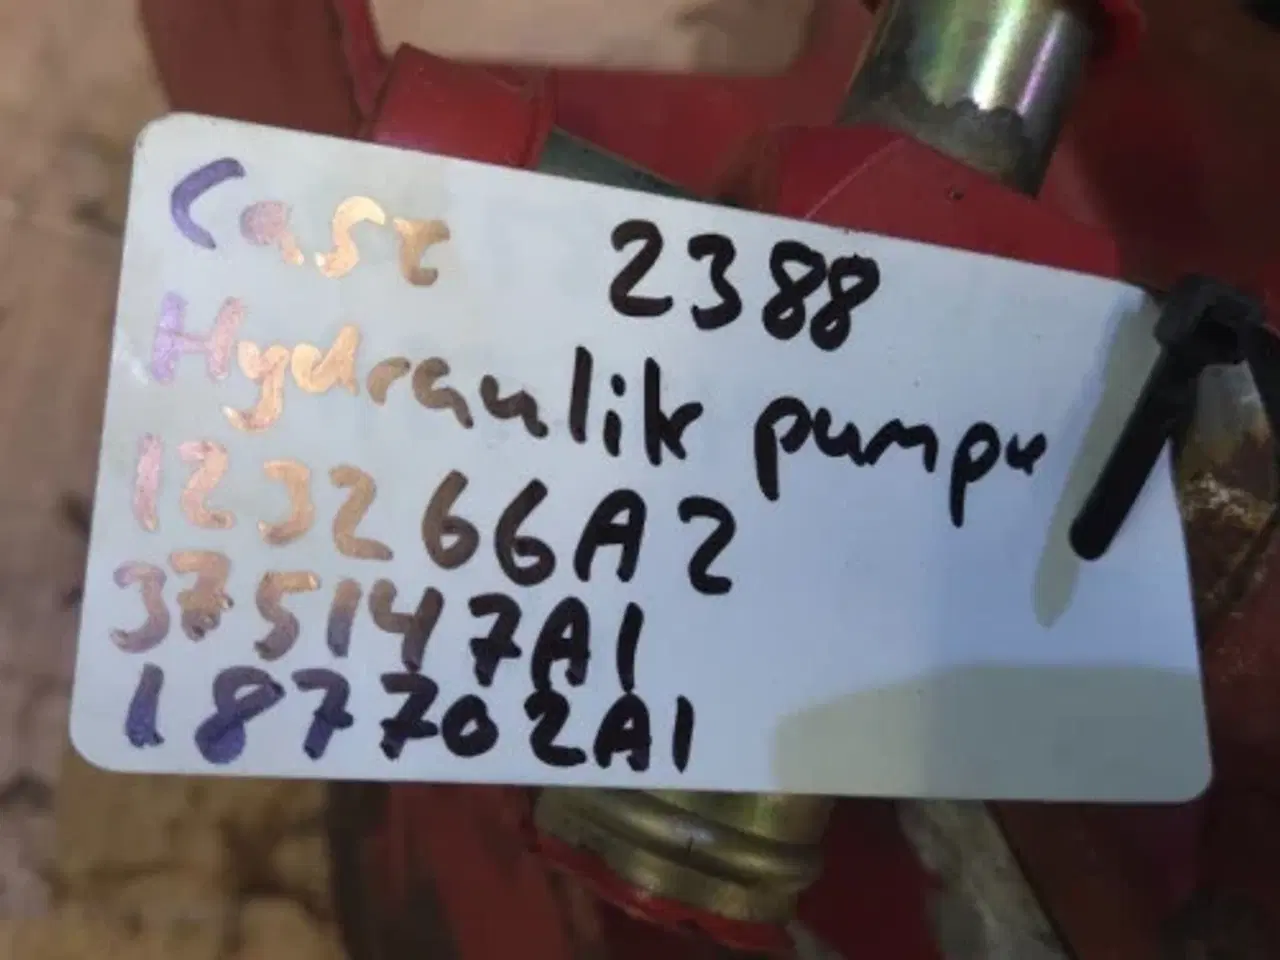 Case 2388
Hydraulik pumpe
123266A2
375147A1
187702A1